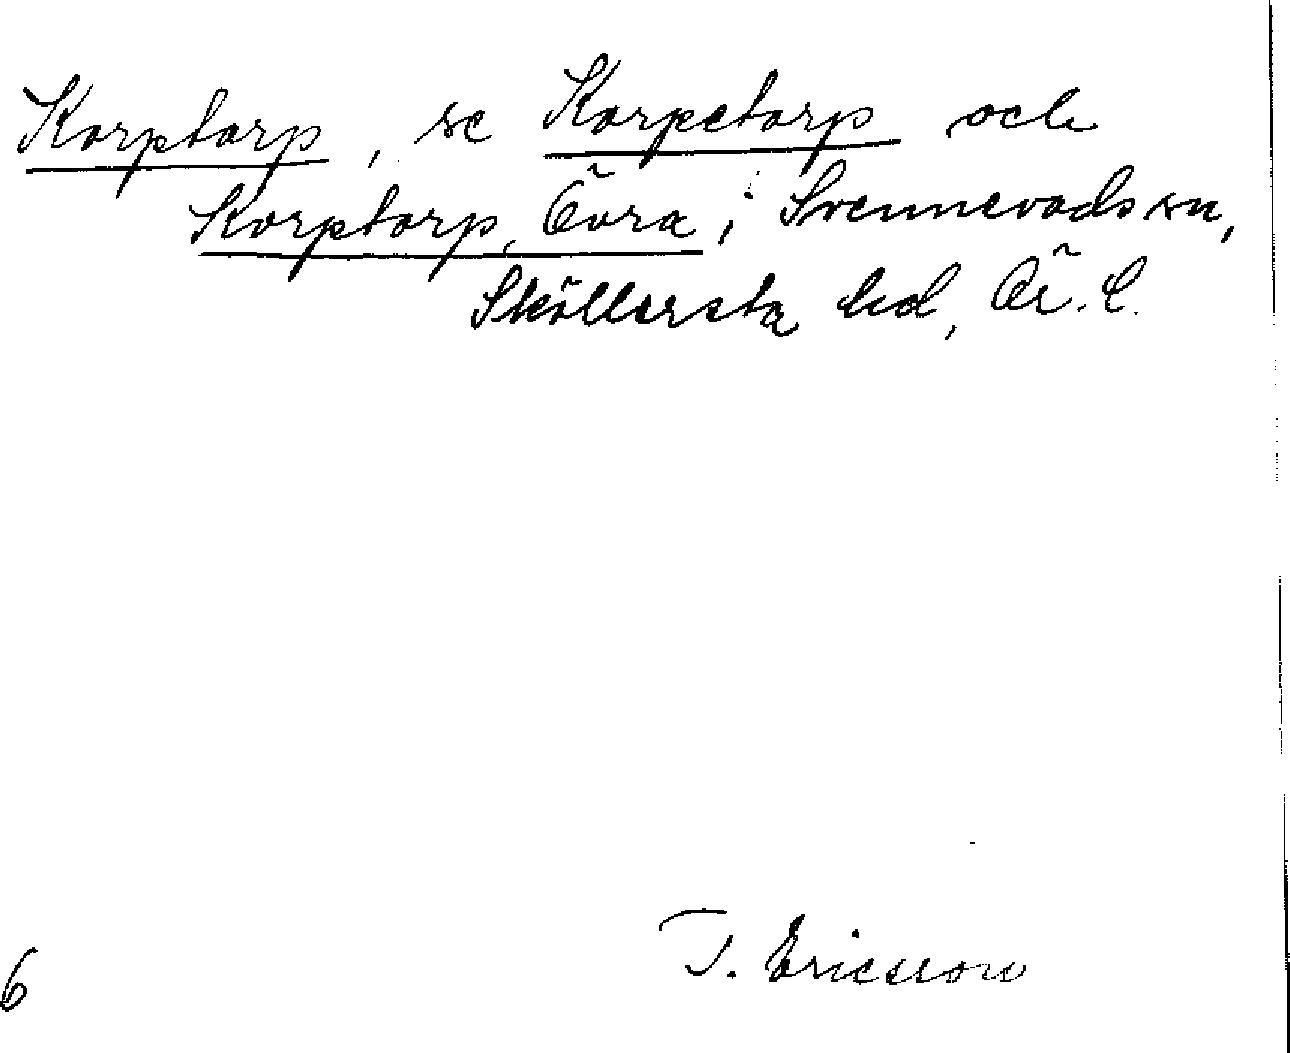 Korptorp, se Korpetorp och
Korptorp, Övra, i Svennevads sn,
Sköllersta hd, Ör. l.
T. Ericsson
6